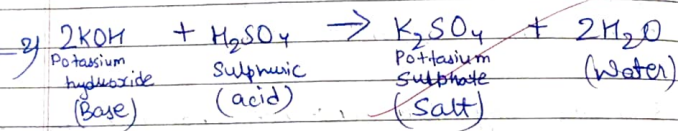 2) 2KOH + H₂SO₄ → K₂SO₄ + 2H₂O
Potassium hydroxide Sulphuric Pottasium Sulphate
(Base) (acid) (Salt) (Water)